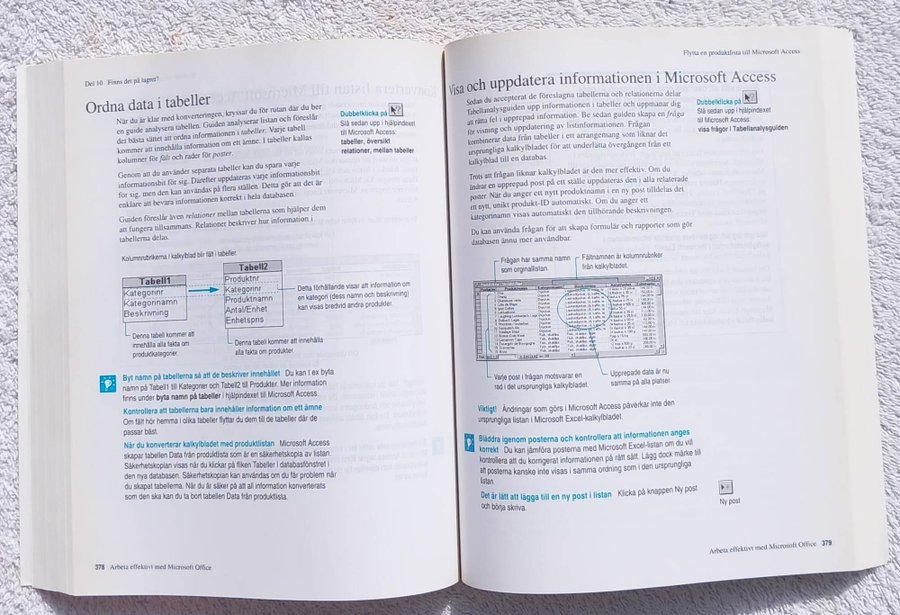 Del 10 Finns det på lagret?
Ordna data i tabeller
När du är klar med konverteringen, kryssar du för rutan där du ber
en guide analysera tabellen. Guiden analyserar listan och föreslår
det bästa sättet att ordna informationen i tabeller. Varje tabell
kommer att innehålla information om ett ämne. I tabeller kallas
kolumner för fält och rader för poster.
Dubbelklicka på
Slå sedan upp i hjälpindexet
till Microsoft Access:
tabeller, översikt
relationer, mellan tabeller
Genom att du använder separata tabeller kan du spara varje
informationsbit för sig. Därefter uppdateras varje informationsbit
för sig, men den kan användas på flera ställen. Detta gör att det är
enklare att bevara informationen korrekt i hela databasen.
Guiden föreslår även relationer mellan tabellerna som hjälper dem
att fungera tillsammans. Relationer beskriver hur information i
tabellerna delas.
Kolumnrubrikerna i kalkylblad blir fält i tabeller.
Tabell1
Kategorinr
Kategorinamn
Beskrivning
Tabell2
Produktnr
Kategorinr
Produktnamn
Antal/Enhet
Enhetspris
Detta förhållande visar att information om
en kategori (dess namn och beskrivning)
kan visas bredvid andra produkter.
Denna tabell kommer att
innehålla alla fakta om
produktkategorier.
Denna tabell kommer att innehålla
alla fakta om produkter.
Byt namn på tabellerna så att de beskriver innehållet Du kan t ex byta
namn på Tabell1 till Kategorier och Tabell2 till Produkter. Mer information
finns under byta namn på tabeller i hjälpindexet till Microsoft Access.
Kontrollera att tabellerna bara innehåller information om ett ämne
Om fält hör hemma i olika tabeller flyttar du dem till de tabeller där de
passar bäst.
När du konverterar kalkylbladet med produktlistan Microsoft Access
skapar tabellen Data från produktlista som är en säkerhetskopia av listan.
Säkerhetskopian visas när du klickar på fliken Tabeller i databasfönstret i
den nya databasen. Säkerhetskopian kan användas om du får problem när
du skapat tabellerna. När du är säker på att all information konverterats
som den ska kan du ta bort tabellen Data från produktlista.
378 Arbeta effektivt med Microsoft Office
Flytta en produktlista till Microsoft Access
Visa och uppdatera informationen i Microsoft Access
Sedan du accepterat de föreslagna tabellerna och relationerna delar
Tabellanalysguiden upp informationen i tabeller och uppmanar dig
att rätta fel i upprepad information. Be sedan guiden skapa en fråga
för visning och uppdatering av listinformationen. Frågan
kombinerar data från tabeller i ett arrangemang som liknar det
ursprungliga kalkylbladet för att underlätta övergången från ett
kalkylblad till en databas.
Dubbelklicka på
Slå sedan upp i hjälpindexet
till Microsoft Access:
visa frågor i Tabellanalysguiden
Trots att frågan liknar kalkylbladet är den mer effektiv. Om du
ändrar en upprepad post på ett ställe uppdateras den i alla relaterade
poster. När du anger ett nytt produktnamn i en ny post tilldelas det
ett nytt, unikt produkt-ID automatiskt. Om du anger ett
kategorinamn visas automatiskt den tillhörande beskrivningen.
Du kan använda frågan för att skapa formulär och rapporter som gör
databasen ännu mer användbar.
Frågan har samma namn
som orginallistan.
Fältnamnen är kolumnrubriker
från kalkylbladet.
Varje post i frågan motsvarar en
rad i det ursprungliga kalkylbladet.
Upprepade data är nu
samma på alla platser.
Viktigt! Ändringar som görs i Microsoft Access påverkar inte den
ursprungliga listan i Microsoft Excel-kalkylbladet.
Bläddra igenom posterna och kontrollera att informationen anges
korrekt Du kan jämföra posterna med Microsoft Excel-listan om du vill
kontrollera att du korrigerat informationen på rätt sätt. Lägg dock märke till
att posterna kanske inte visas i samma ordning som i den ursprungliga
listan.
Det är lätt att lägga till en ny post i listan Klicka på knappen Ny post
och börja skriva.
Ny post
Arbeta effektivt med Microsoft Office 379